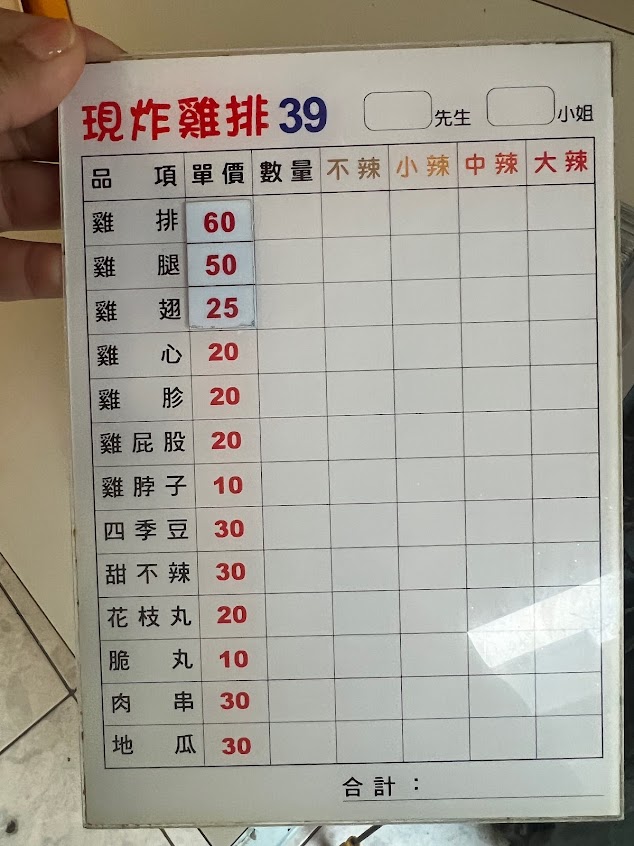 現炸雞排39 先生 小姐
品項 單價 數量 不辣 小辣 中辣 大辣
雞排 60
雞腿 50
雞翅 25
雞心 20
雞胗 20
雞屁股 20
雞脖子 10
四季豆 30
甜不辣 30
花枝丸 20
脆丸 10
肉串 30
地瓜 30
合計：